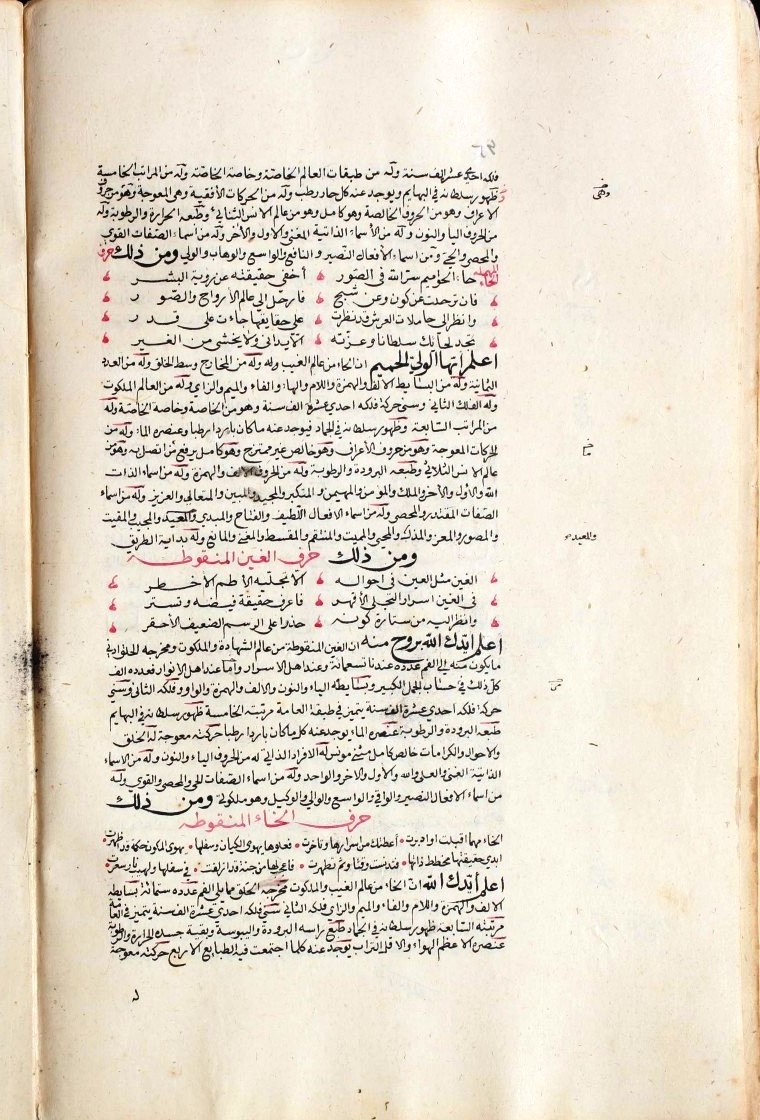 فلكه احدى عشرالف سنة وله من طبقات العالم الخاصة وخاصة الخاصة وله من المراتب الخامسة
وظهور سلطانه في البهايم ويوجد عنه كل حار رطب وله من الحركات الأفقية وهي المعوجة وهو من حروف
الاعراف وهو من الحروف الخالصة وهو كامل وهو من عالم الانس الثنائي وطبعه الحرارة والرطوبة وله
من الحروف اليا والنون وله من الأسماء الذاتية الغني والاول والآخر وله من اسماء الصفات القوي
والمحصي والحي ومن اسماء الأفعال النصير والنافع والواسع والوهاب والوالي ومن ذلك حرف
الحاء المهملة
حاء الحواميم سر الله في السور أخفى حقيقته عن رؤية البشر
فان ترحلت عن كون وعن شبح فارحل الى عالم الأرواح والصور
وانظر الى حاملات العرش قد نظرت على حقايقها جاءت على قدر
تجد لحائك سلطانا وعزته الا يدانى ولا يخشى من الغير
اعلم ايها الولي الحميم ان الحاء من عالم الغيب وله من المخارج وسط الحلق وله من العدد
الثمانية وله من البسايط الالف والهمزة واللام والهاء والفاء والميم والزاي وله من العالم الملكوت
وله الفلك الثاني وسني حركة فلكه احدي عشرة الف سنة وهو من الخاصة وخاصة الخاصة وله
من المراتب السابعة وظهور سلطانه في الجماد فيوجد عنه ماكان باردا رطبا وعنصره الماء وله من
الحركات المعوجة وهو من حروف الأعراف وهو خالص غير ممتزج وهو كامل يرفع من اتصل به وهو من
عالم الانس الثلاثي وطبعه البرودة والرطوبة وله من الحروف الالف والهمزة وله من اسماء الذات
الله والاول والآخر والملك والمؤمن والمهيمن والمتكبر والمجيد والمبين والمتعالي والعزيز وله من اسماء
الصفات المقتدر والمحصي وله من اسماء الافعال اللطيف والفتاح والمبدي والمعيد والمجيب والمقيت
والمصور والمعز والمذل والمحيي والمميت والمنتقم والمقسط والمغني والمانع وله بداية الطريق
ومن ذلك حرف الغين المنقوطة
الغين مثل العين في احواله الا تجليه الأطم الأخطر
في الغين اسرار التجلي الأقهر فاعرف حقيقة فيضه وتستر
وانظر اليه من ستارة كونه حذرا على الرسم الضعيف الأحقر
اعلم ايدك الله بروح منه ان الغين المنقوطة من عالم الشهادة والملكوت ومخرجه الحلق ادني
ما يكون منه الى الفم عدده عندنا تسعمائة وعند اهل الاسرار واما عند اهل الانوار فعدده الف
كل ذلك في حساب الجمل الكبير وبسايطه الياء والنون والالف والهمزة والواو وفلكه الثاني وسني
حركة فلكه احدي عشرة الف سنة يتميز في طبقة العامة مرتبته الخامسة ظهور سلطانه في البهايم
طبعه البرودة والرطوبة عنصره الماء يوجد عنه كل ماكان باردا رطبا حركته معوجة له الخلق
والاحوال والكرامات خالص كامل مثنى مونس له الافراد الذاتي له من الحروف الياء والنون وله من الاسماء
الذاتية الغني والعلي والله والاول والآخر والواحد وله من اسماء الصفات الحي والمحصي والقوي وله
من اسماء الافعال النصير والواقي والواسع والوالي والوكيل وهو ملكوتي ومن ذلك
حرف الخاء المنقوطة
الخاء مهما اقبلت او ادبرت أعطتك من اسرارها وتاخرت فعلوها يهوي الكيان وسفلها يهوي المكون حكمة قد ظهرت
ابدي حقيقتها مخطط ذاتها فتدنست وقتا وثم تطهرت فاعجب لها من جنة قد ازلفت في سفلها ولهيب نار سعرت
اعلم ايدك الله ان الخاء من عالم الغيب والملكوت مخرجه الحلق مما يلي الفم عدده ستمائة بسايطه
الالف والهمزة واللام والفاء والهاء والميم والزاي فلكه الثاني سني فلكه احدي عشرة الف سنة يتميز في العامة
مرتبته السابعة ظهور سلطانه في الجماد طبع راسه البرودة واليبوسة وبقية جسده الحرارة والرطوبة
عنصره الاعظم الهواء والاقل التراب يوجد عنه كلما اجتمعت فيه الطبايع الاربع حركته معوجة